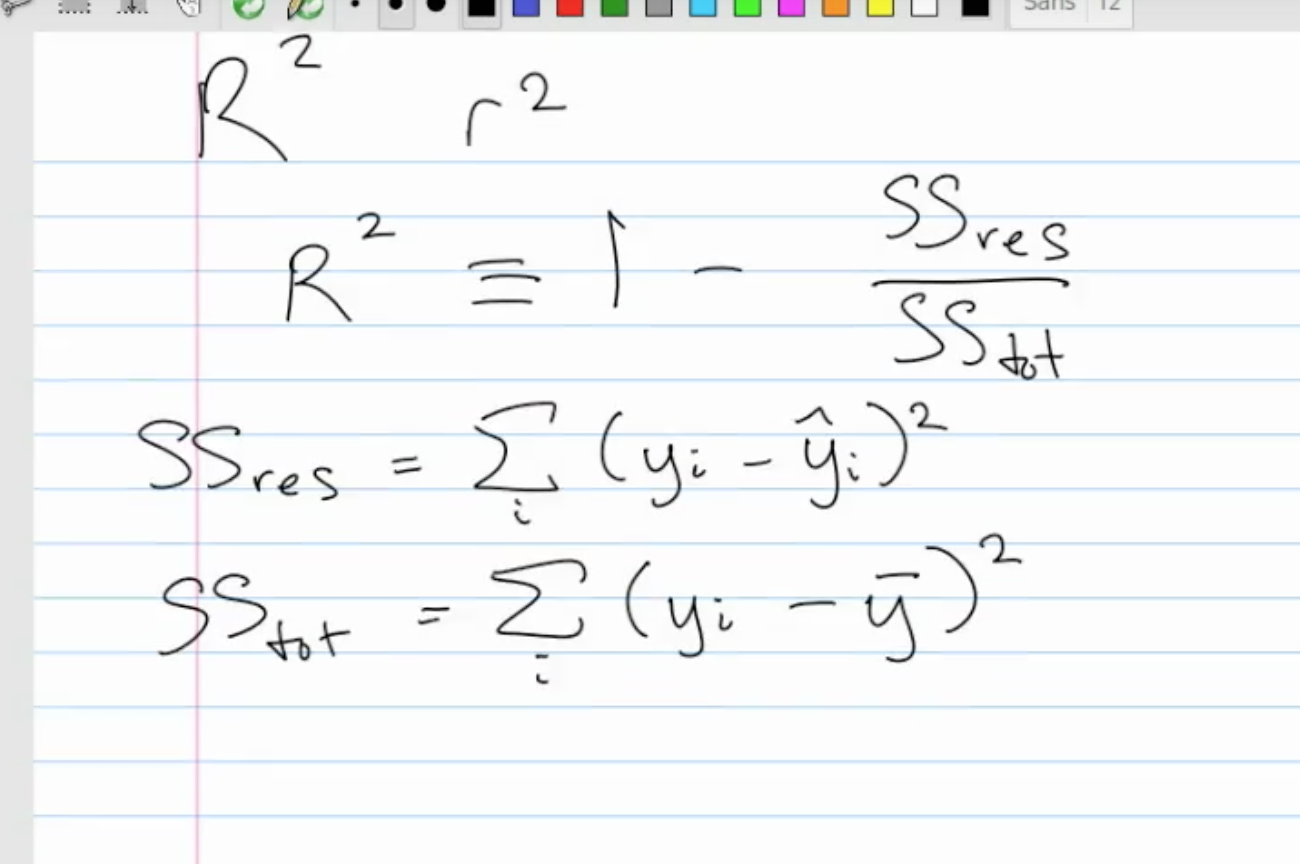 Sans 12
R² r²
R² ≡ 1 - SSres / SStot
SSres = Σi (yi - ŷi)²
SStot = Σi (yi - ȳ)²